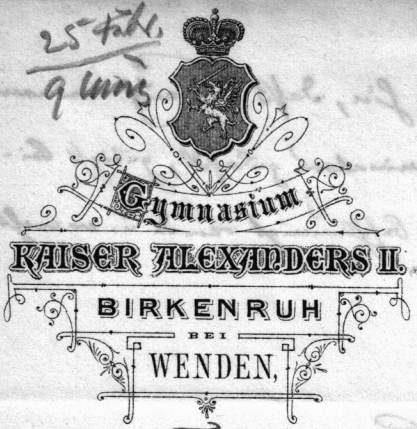 25
9
Gymnasium
KAISER ALEXANDERS II.
BIRKENRUH
BEI
WENDEN,